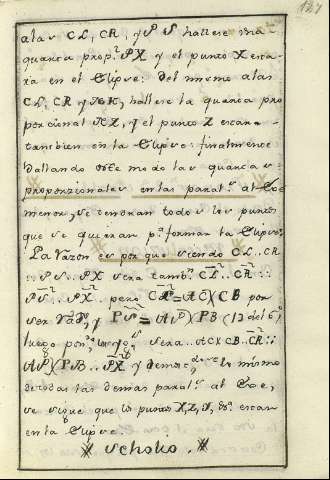 127
a las CL, CR, y PS hallese una
quarta prop.l PX y el punto X estara
en el Elipse: del mismo a las
CL, CR y NK, hallese la quarta pro
porcional NZ, y el punto Z estara
tambien en la Elipse: finalmente
hallando de este modo las quartas
proporzionales en las paral.s al Exe
menor, se tendran todos los puntos
que se quieran p.a formar la Elipse.
La razon es por que siendo CL..CR
:: PS..PX sera tamb.n CL..CR::
PS..PX pero CR=AC)(CB por
ser y PS=AP)(PB (13 del 6)
luego sera..AC)(CB..CR::
AP)(PB..PX y lo mismo
de todas las demas paral.s al Exe,
se sigue que los puntos X, Z, estan
en la Elipse.
Scholio.